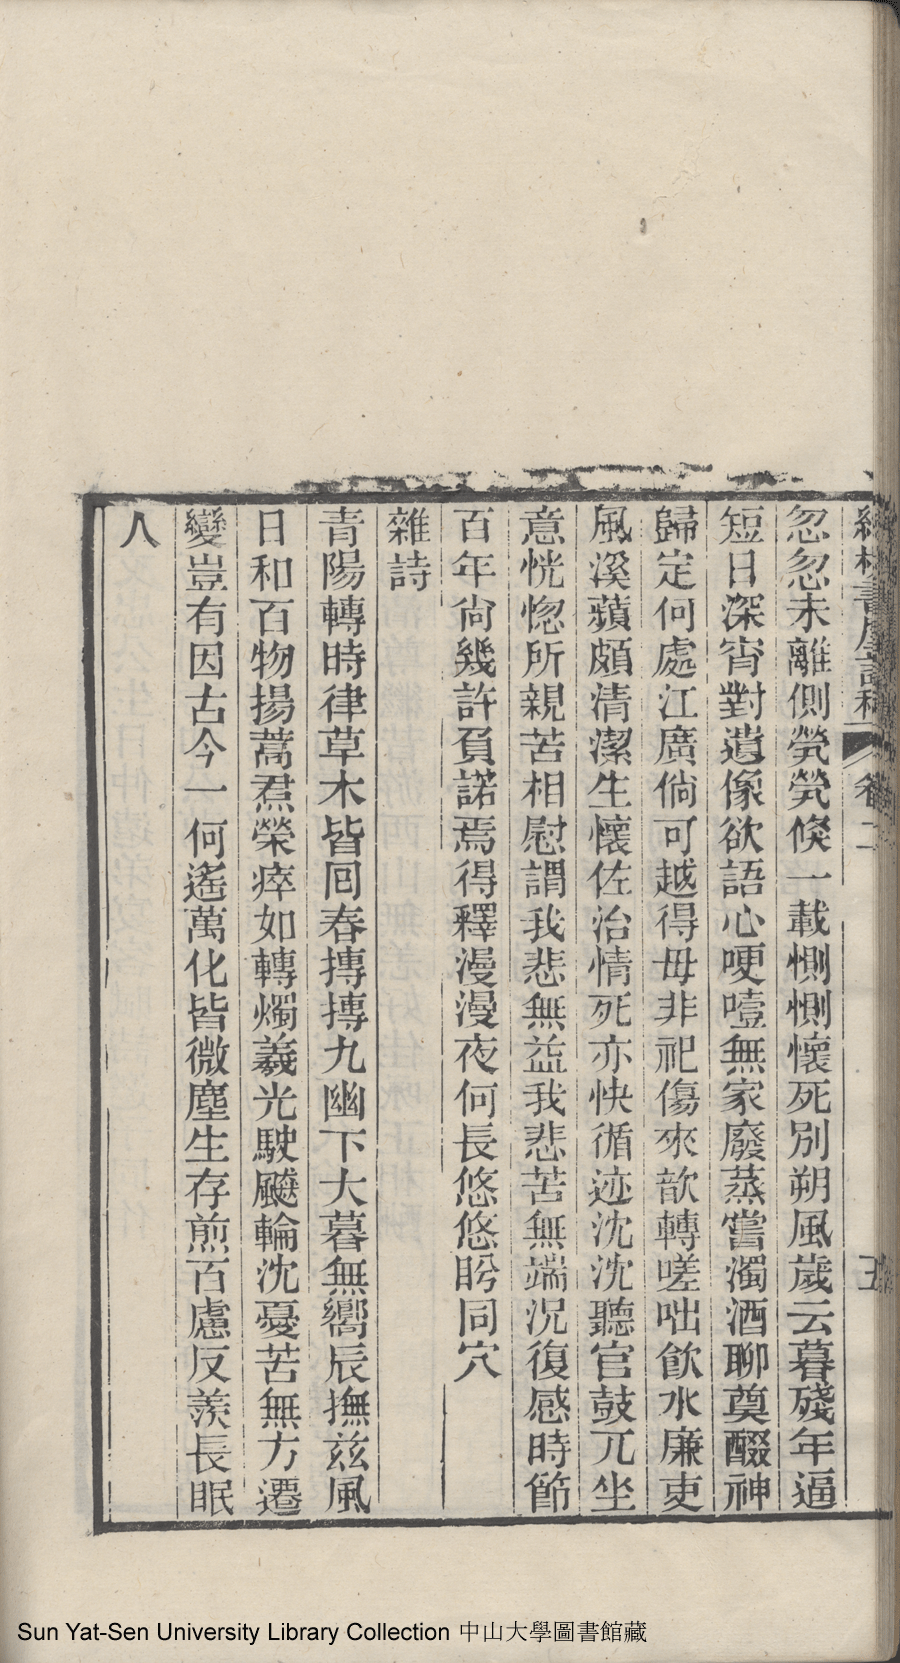 忽忽未離側煢煢倏一載惻惻懷死別朔風歲云暮殘年逼
短日深宵對遺像欲語心哽噎無家廢蒸嘗濁酒聊奠醊神
歸定何處江廣倘可越得毋非祀傷來歆轉嗟咄飮水廉吏
風溪蘋頗清潔生懷佐治情死亦快循迹沈沈聽官鼓兀坐
意恍惚所親苦相慰謂我悲無益我悲苦無端況復感時節
百年尙幾許負諾焉得釋漫漫夜何長悠悠盻同穴
雜詩
青陽轉時律草木皆囘春摶摶九幽下大暮無嚮辰撫茲風
日和百物揚蒿焄榮瘁如轉燭羲光駛飈輪沈憂苦無方遷
變豈有因古今一何遙萬化皆微塵生存煎百慮反羨長眠
人
書屋詩稿 卷二 五
Sun Yat-Sen University Library Collection 中山大學圖書館藏